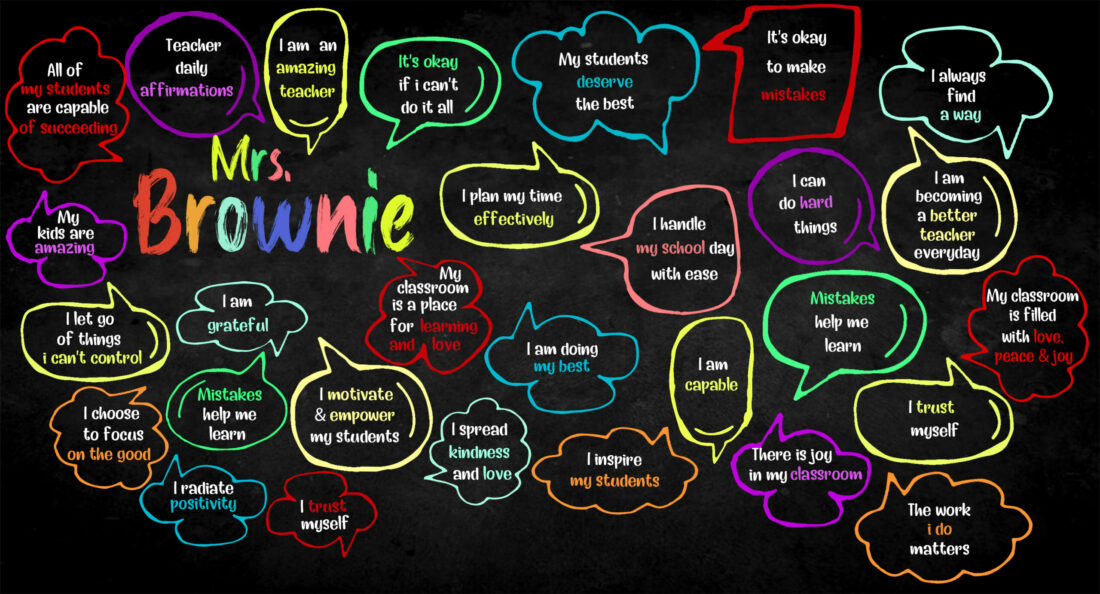 All of
my students
are capable
of succeeding
Teacher
daily
affirmations
I am an
amazing
teacher
It's okay
if i can't
do it all
My students
deserve
the best
It's okay
to make
mistakes
I always
find
a way
Mrs.
Brownie
I plan my time
effectively
I handle
my school day
with ease
I can
do hard
things
I am
becoming
a better
teacher
everyday
My
kids are
amazing
I let go
of things
i can't control
I am
grateful
My
classroom
is a place
for learning
and love
I am doing
my best
I am
capable
Mistakes
help me
learn
My classroom
is filled
with love,
peace & joy
I choose
to focus
on the good
Mistakes
help me
learn
I motivate
& empower
my students
I spread
kindness
and love
I inspire
my students
There is joy
in my classroom
I trust
myself
I radiate
positivity
I trust
myself
The work
i do
matters